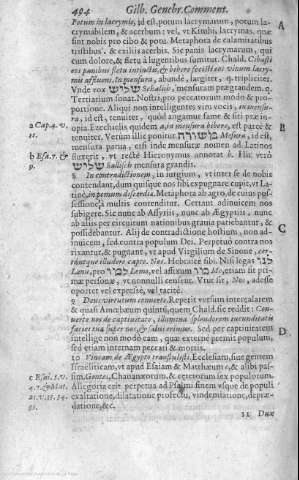 494 Gilb. Genebr. Comment.
Potum in lacrymis, id est, potum lacrymarum, potum la-
crymabilem, & acerbum: vel, vt Kimhi, lacrymas, quæ
sint nobis pro cibo & potu. Metaphora de calamitatibus
tristibus, & exilii acerbis. Sic panis lacrymarum, qui
cum dolore, & fletu à lugentibus sumitur. Chald. Cibasti
eos panibus fletu intinctis, & bibere fecisti eos vinum lacry-
mis In mensura, abunde, largiter, q. tripliciter.
Vnde vox שליש Schalisch, mensuram quandam. q.
Tertiarium sonat. Nostri, pro peccatorum modo & pro-
portione. Aliqui non intelligentes vim vocis,
id est, tenuiter, quòd angamur fame & siti præ in-
opia. Ezechielis quidem aqua in mensura bibere, est parcè &
tenuiter. Verum illic ponitur משורה Mesura, id est,
mensura parua, ensi inde mensuræ nomen ad Latinos
fluxerit, vt recte Hieronymus annotat b. Hîc verò
שליש Salisch mensura grandis.
a Cap. 4. v.
11.
b Esa. 7. &
9.
In contradictionem, in iurgium, vt inter se de nobis
contendant, dum quisque nos sibi expugnare cupit, vt La-
tinè, in
Metaphora ab agro, de cuius pos-
sessione à multis contenditur. Certant adinuicem nos
subigere. Sic nunc ab Assyriis, nunc ab Ægyptiis, nunc
ab aliis per circuitum nationibus grauia patiebantur, &
possidebantur. Alij de contradictione hostium, non ad
inuicem, sed contra populum Dei. Perpetuò contra nos
rixantur, & pugnant, vt apud Virgilium de Sinone, cer-
tántque illudere capto. Nos, Hebraicè sibi. Nisi legas
לנו Lanu, pro למו Lamo, vel affixum מו Mo, etiam sit pri-
mæ personæ, vt nonnulli censent. Vtut sit, Nos, adesse
oportet vel expressè, vel tacitè.
Deus virtutum conuerte. Repetit versum intercalarem
& quasi Amœbæum quintū, quem Chald. sic reddit: Con-
uerte nos de captiuitate, illumina splendorem iucunditatis
faciei tuæ super nos, & salui erimus. Sed per captiuitatem
intellige non modò eam, quæ externe premit populum,
sed etiam internam peccati & mortis.
10 Vineam de Ægypto transtulisti. Ecclesiam, siue gentem
Israëliticam, vt apud Esaiam & Matthæum c, & alibi pas-
sim. Gentes, Chananæorum, & cæterorum sex populorum.
Allegoria erit perpetua ad Psalmi finem vsque de populi
exaltatione, dilatatione profectu, vindemiatione, depræ-
datione, &c.
c Esai. 5. v.
4. 7. & Mat.
21. v. 33. 34.
35.
A
B
C
D
11 Dux